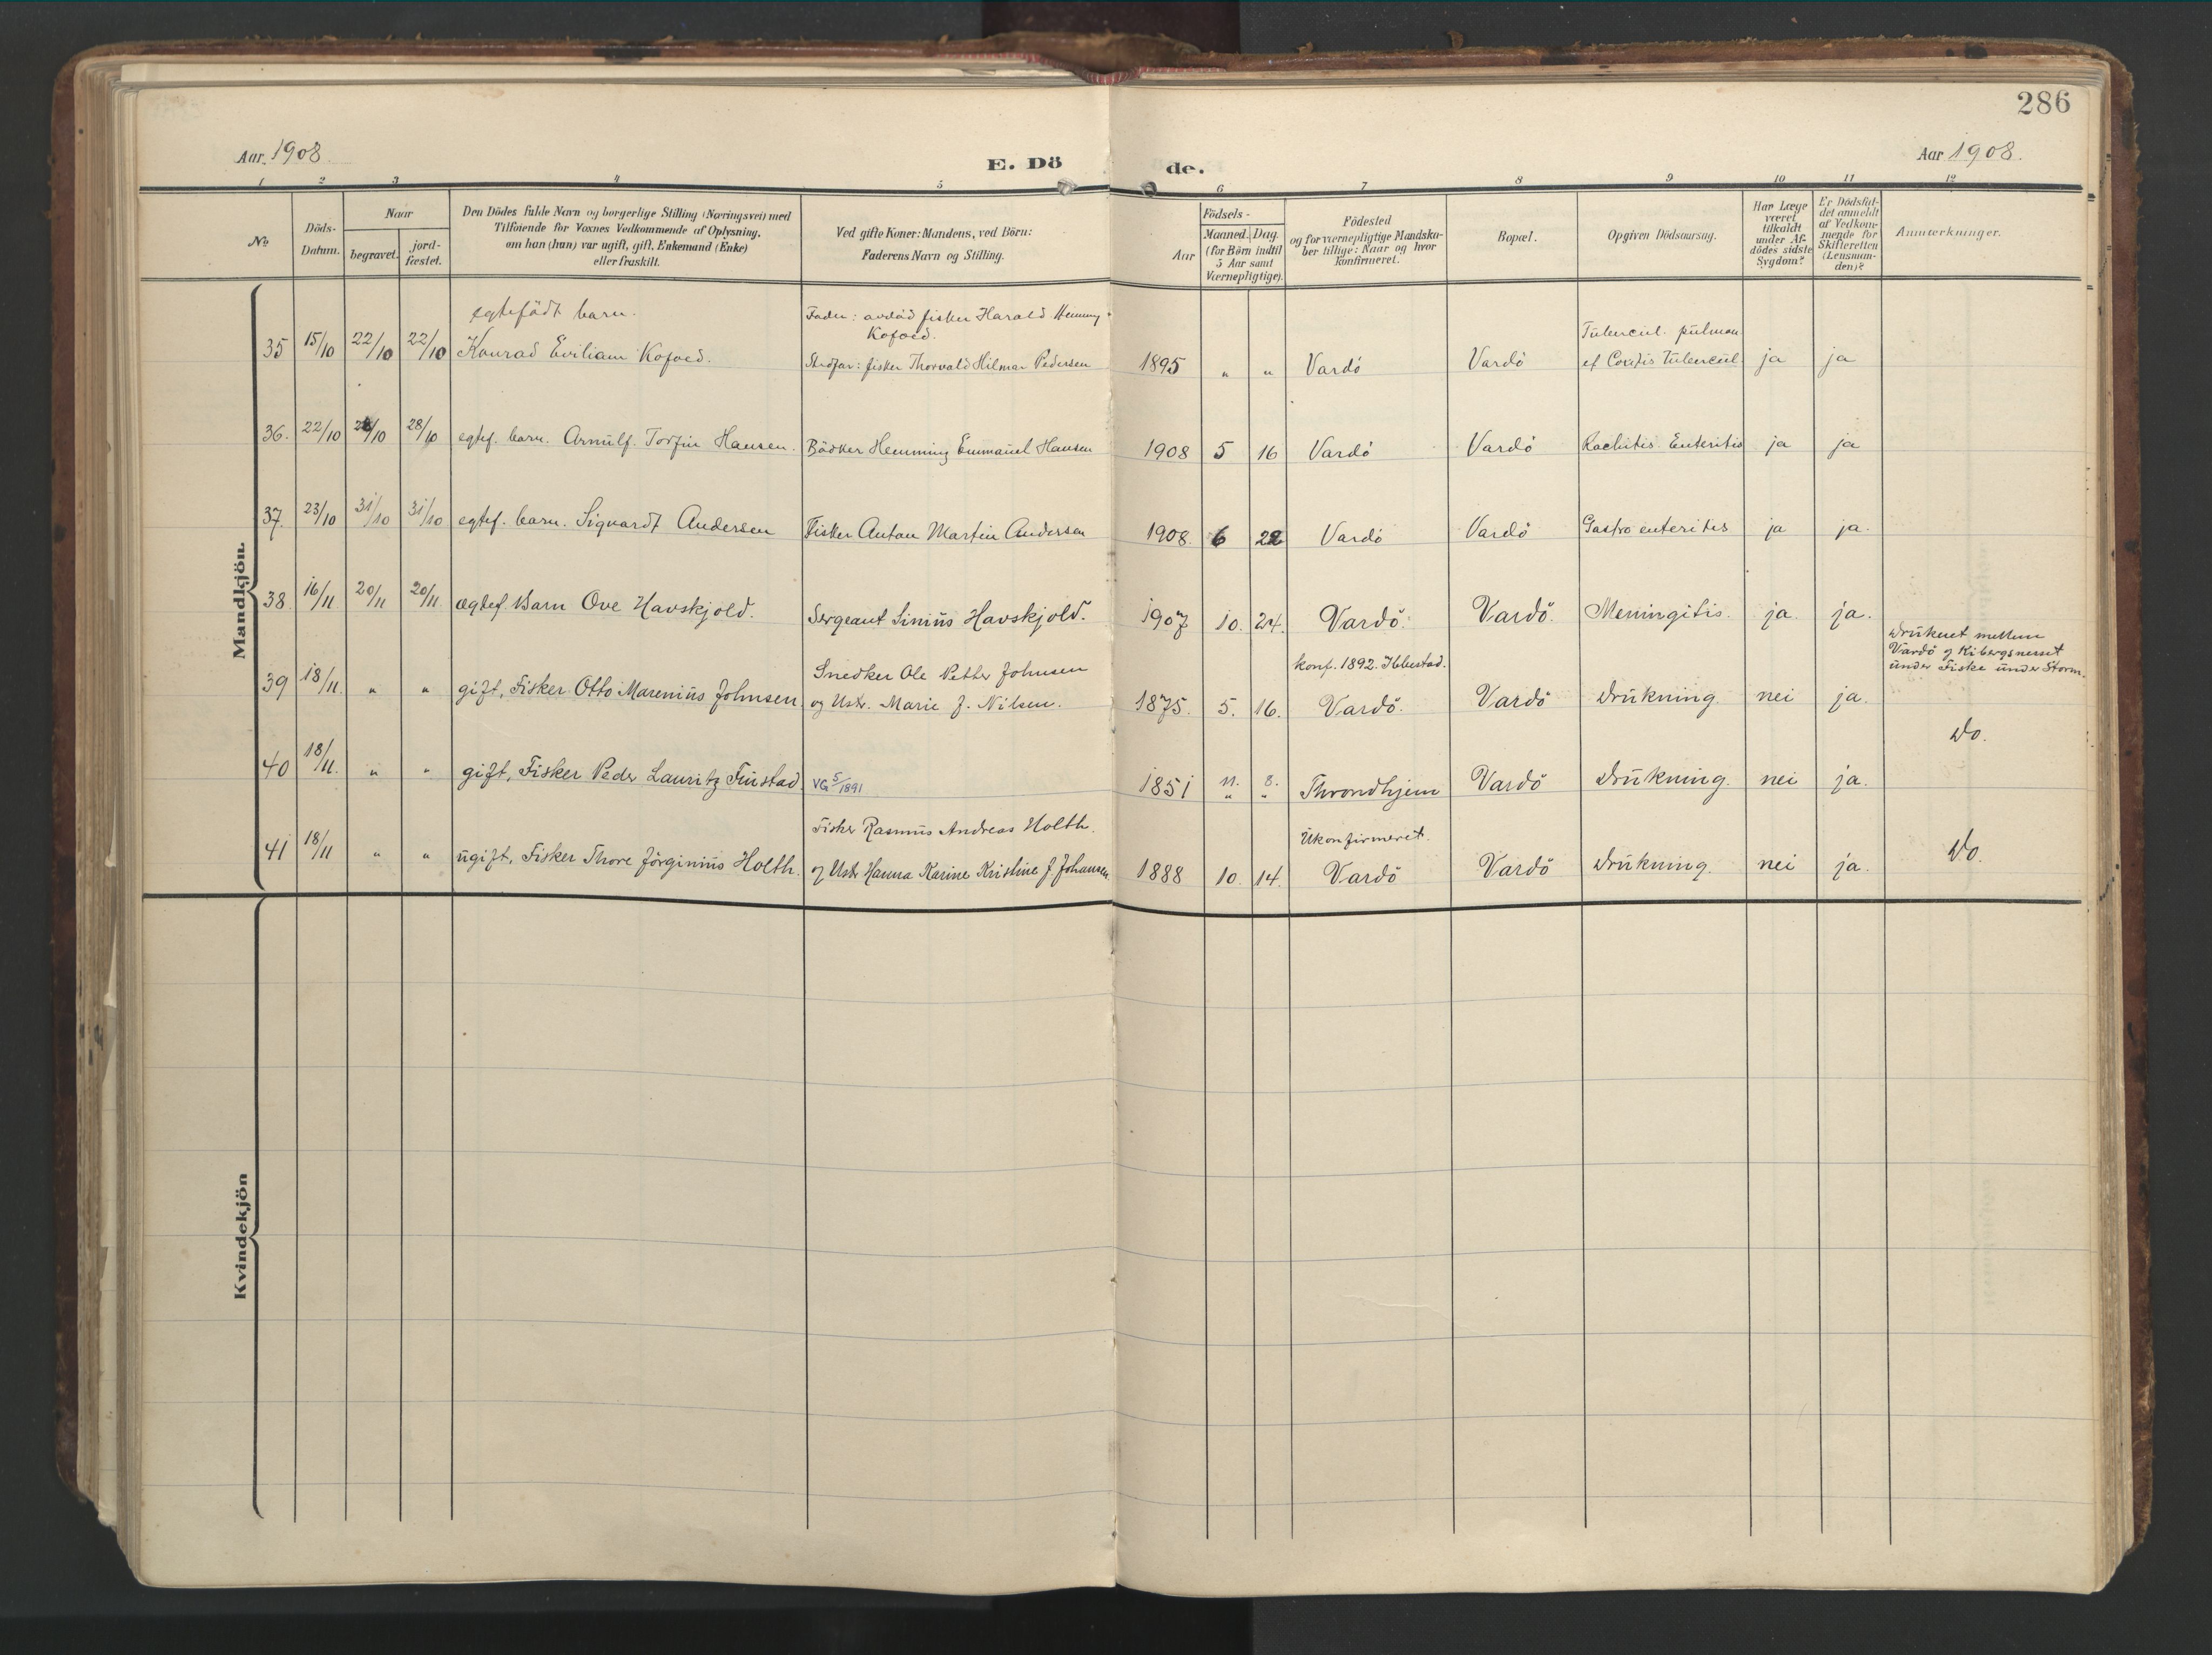 286
Aar 1908.
E. Dö
de.
Aar 1908.
1 2 3 4 5 6 7 8 9 10 11 12
No
Döds-
Datum.
Naar
begravet.
jord-
fæstet.
Den Dödes fulde Navn og borgerlige Stilling (Næringsvei) med
Tilföiende for Voxnes Vedkommende af Oplysning,
om han (hun) var ugift, gift, Enkemand (Enke)
eller fraskilt.
Ved gifte Koner: Mandens, ved Börn:
Faderens Navn og Stilling.
Födsels-
Aar
Maaned. Dag.
(for Börn indtil
5 Aar samt
Værnepligtige).
Födested
og for værnepligtige Mandska-
ber tillige: Naar og hvor
konfirmeret.
Bopæl.
Opgiven Dödsaarsag.
Har Læge
været
tilkaldt
under Af-
dödes sidste
Sygdom?
Er Dödsfal-
det anmeldt
af Vedkom-
mende for
Skifteretten
(Lensman-
den)?
Anmærkninger.
Mandkjön.
egtefödt barn. Fader: avdöd fisker Harald Henning
Kofoed. Tubercul. pulmon
35 15/10 22/10 22/10 Konrad Eviliam Kofoed. Stedfar: fisker Thorvald Hilmar Pedersen 1895 " " Vardö Vardö et Coxitis tubercul. ja ja
36. 22/10 28/10 28/10 egtef. barn. Arnulf Torfin Hansen. Bödker Hemming Emmanuel Hansen 1908 5 16 Vardö Vardö Rachitis Enteritis ja ja
37. 23/10 31/10 31/10 egtef. barn. Sigvardt Andersen Fisker Anton Martin Andersen 1908. 6 22 Vardö Vardö Gastro enteritis ja ja.
38. 16/11. 20/11 20/11. ægtef. Barn Ove Havskjold. Sergeant Sinius Havskjold. 1907 10. 24. Vardö. Vardö. Meningitis. ja. ja.
Druknet mellem
Vardö og Kibergsnesset
under Fiske under Storm.
Snedker Ole Petter Johnsen konf. 1892. Ibbestad.
39 18/11. " " gift, Fisker Otto Marenius Johnsen og Ustr. Marie J. Nilsen. 1875. 5. 16. Vardö. Vardö Drukning. nei ja.
Do.
40 18/11. " " gift, Fisker Peder Lauritz Finstad. VG 5/1891 1851 11. 8. " " Throndhjem Vardö Drukning. nei ja.
Fisker Rasmus Andreas Holth. Ukonfirmeret.
41 18/11 " " ugift, Fisker Thore Jörginius Holth. og Ustr Hanna Karine Kristine J. Johansen 1888 10. 14. Vardö Vardö Drukning. nei ja. Do.
Kvindekjön